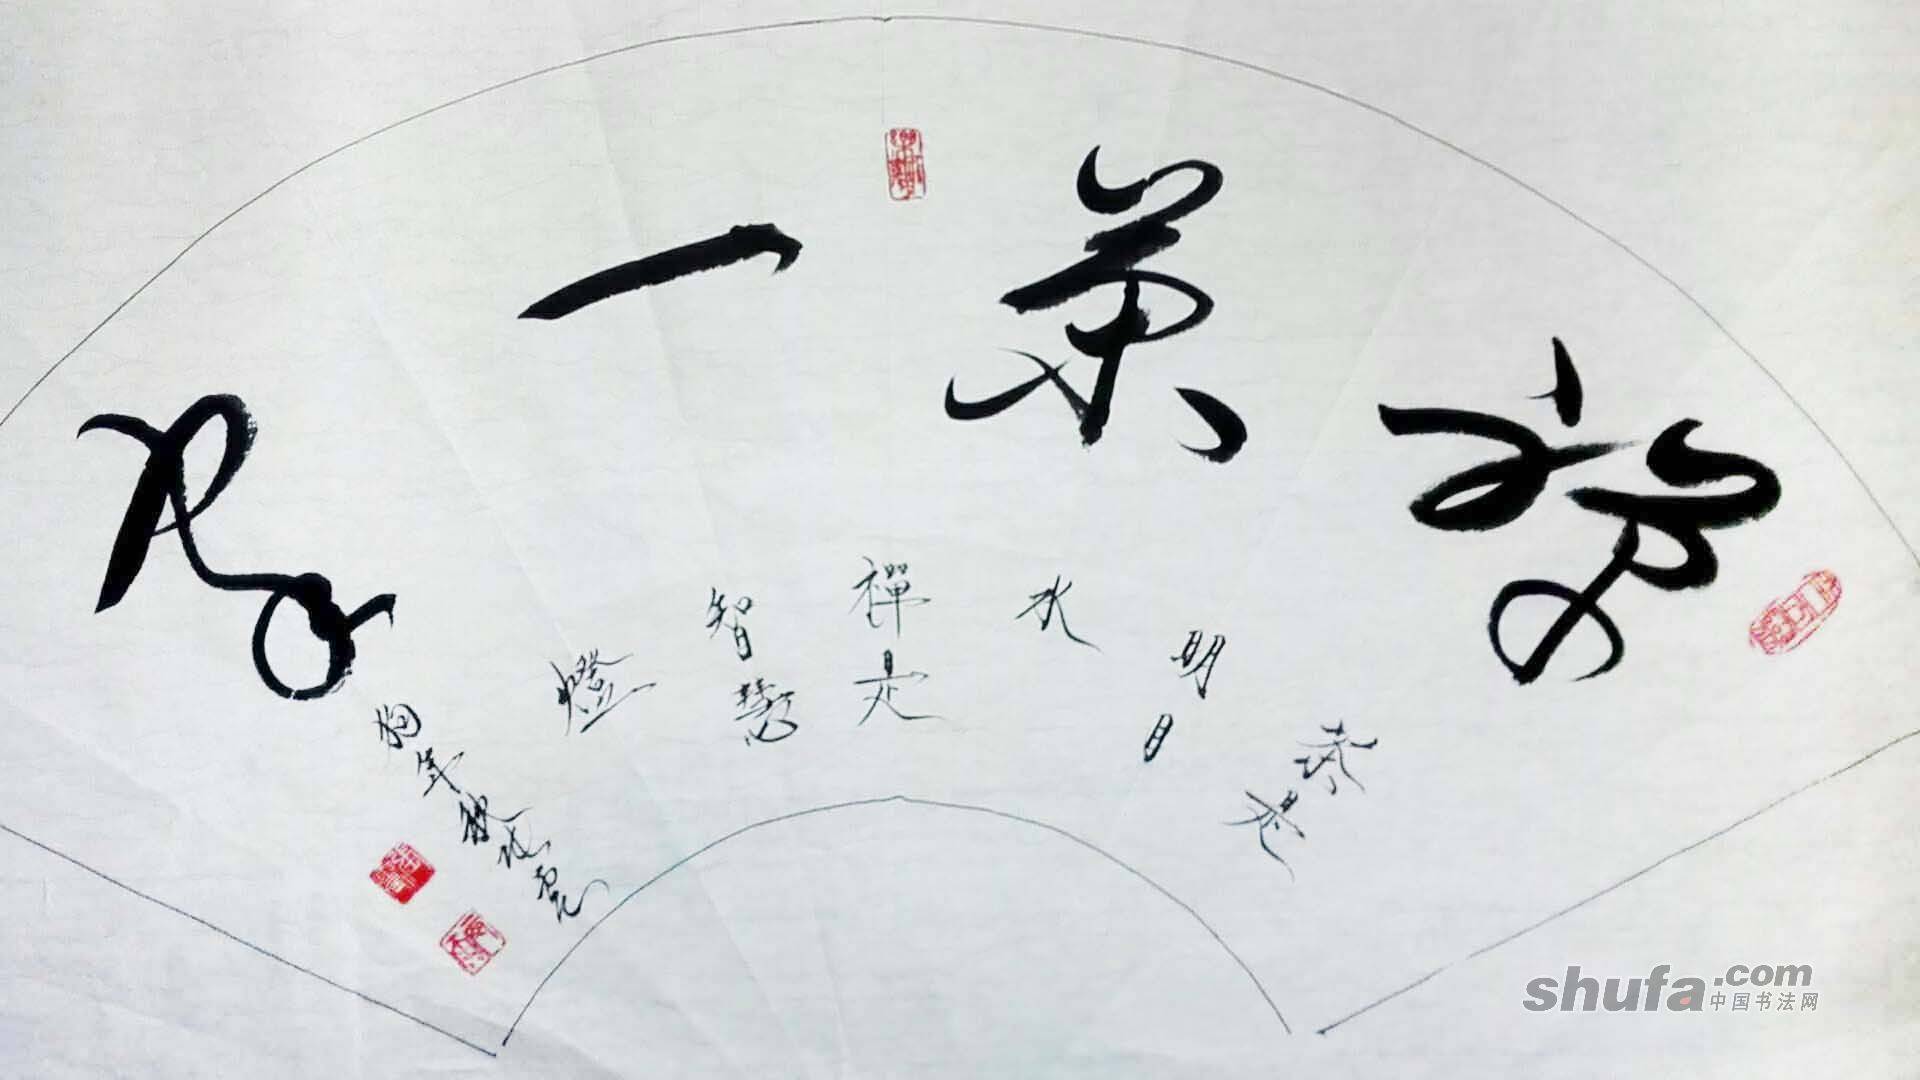 禅茶一味
茶是
明目
水
禪是
智慧
燈
狗年秋
shufa.com
中国书法网